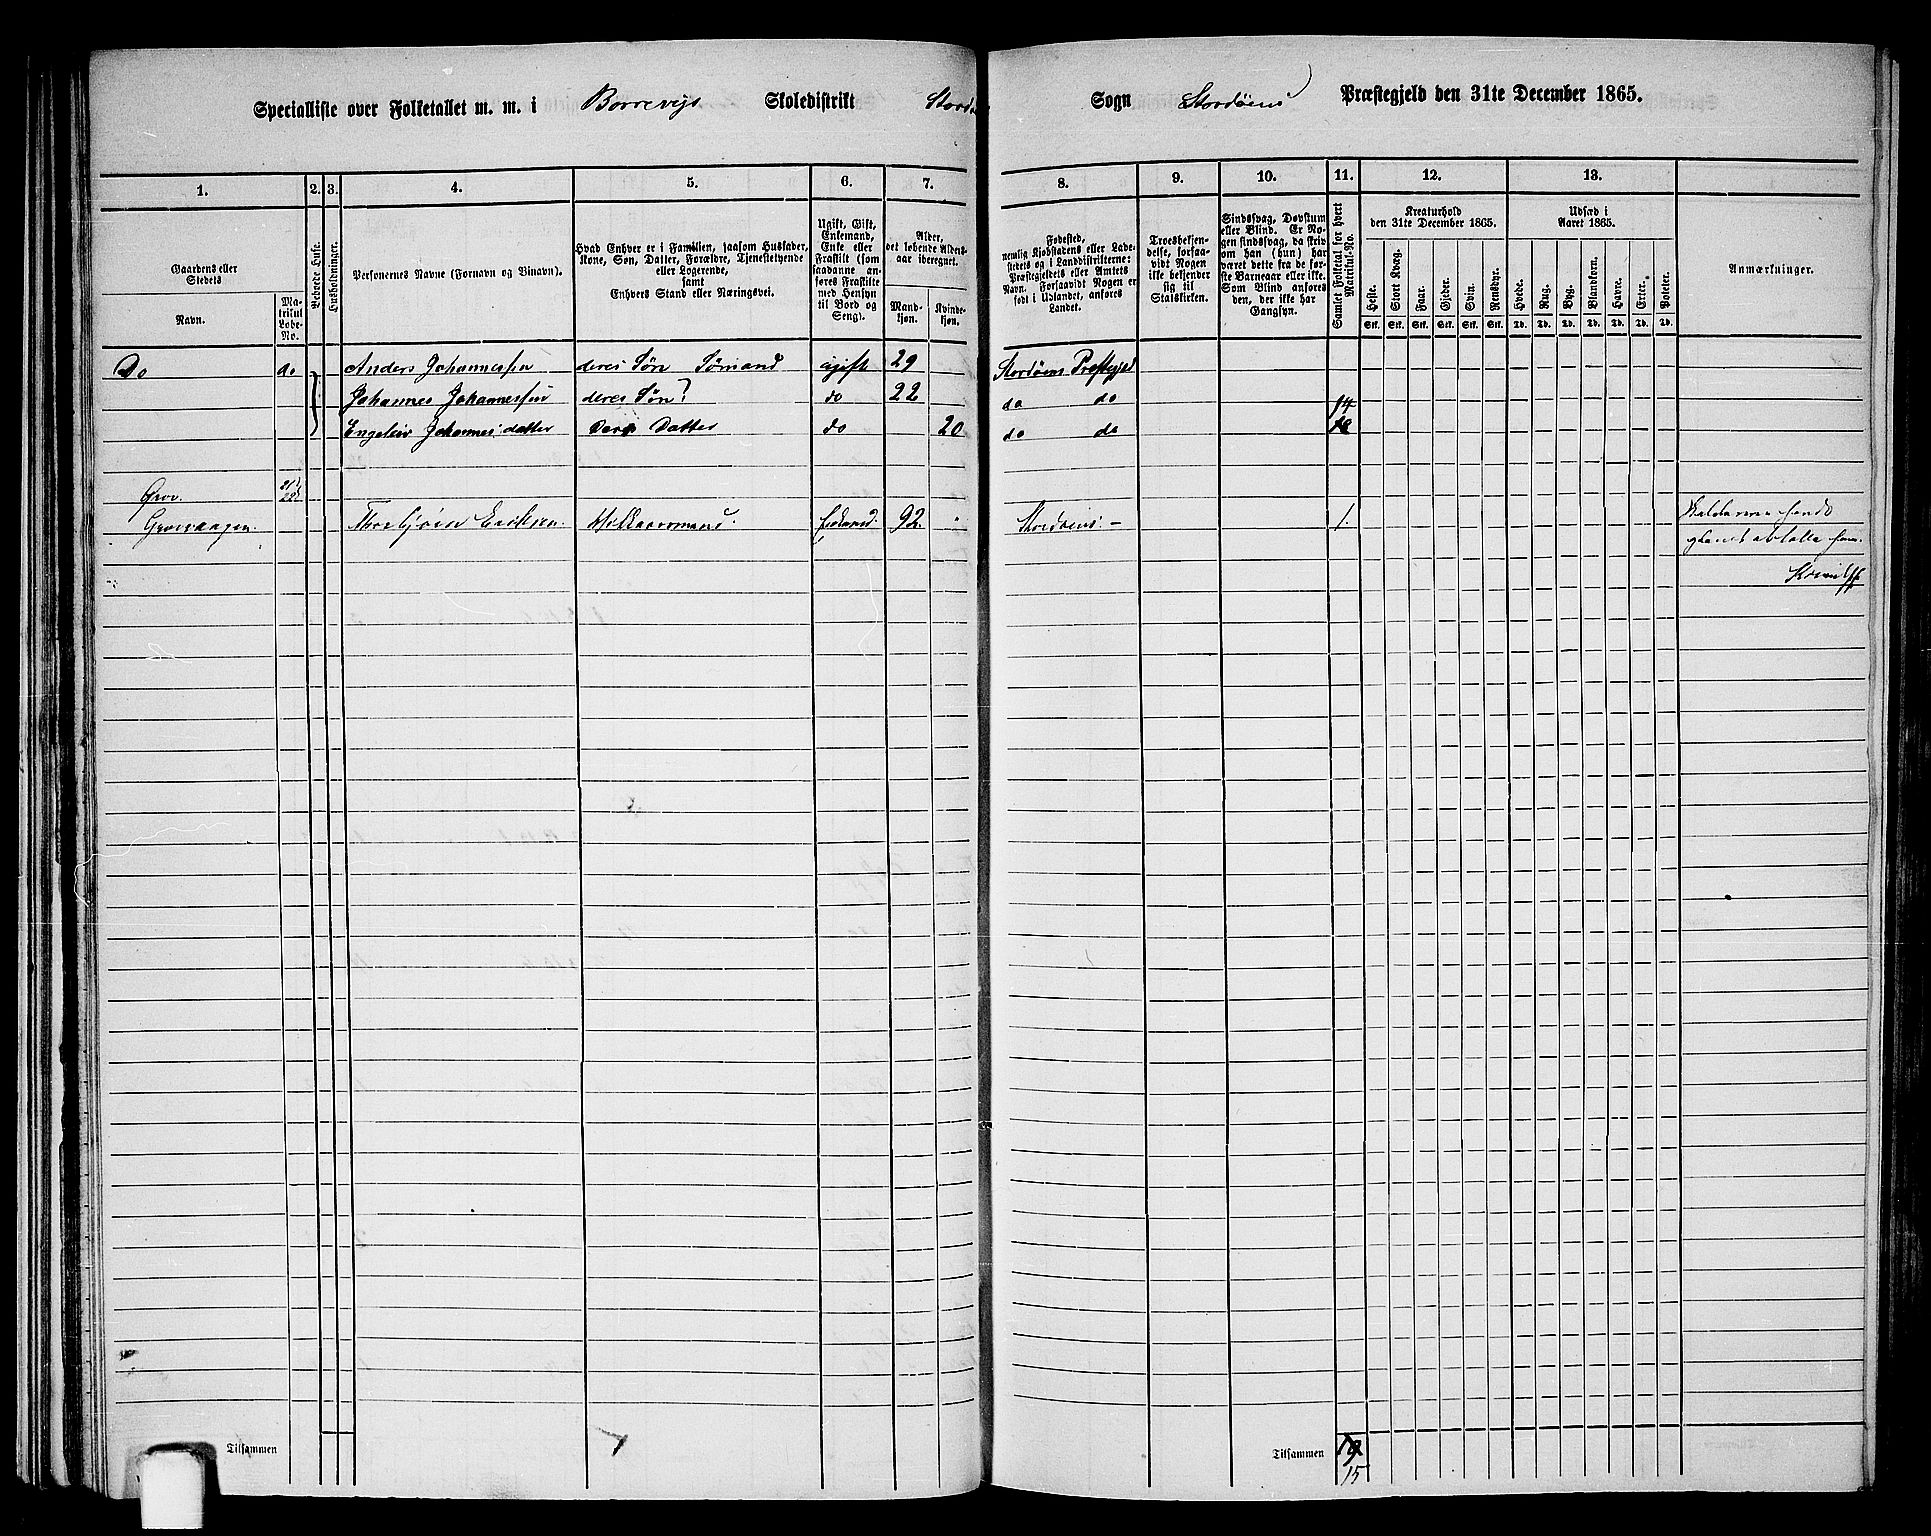 Speciallifte over Folketallet m. m. i Borrevigs Skoledistrikt Stordø Sogn Stordøens Præstegjeld den 31te December 1865.
1. 2. 3. 4. 5. 6. 7. 8. 9. 10. 11. 12. 13.
Gaardens eller Stedets
Navn.
Matrikul Løbe-No.
Beboede Huse.
Husholdninger.
Personernes Navne (Fornavn og Binavn).
Hvad Enhver er i Familien, saasom Husfader, Kone, Søn, Datter, Forældre, Tjenestetyende eller Logerende, samt Enhvers Stand eller Næringsvei.
Ugift, Gift, Enkemand, Enke eller Fraskilt (som saadanne anføres Fraskilte med Hensyn til Bord og Seng).
Alder, det løbende Aldersaar iberegnet.
Mandkjøn. Kvindekjøn.
Fødested, nemlig Kjøbstadens eller Ladestedets og i Landdistrikterne: Præstegjeldets eller Amtets Navn. Forsaavidt Nogen er født i Udlandet, anføres Landet.
Troesbekjendelse, forsaavidt Nogen ikke bekjender sig til Statskirken.
Sindssvag, Døvstum eller Blind. Er Nogen sindssvag, da skrives om han (hun) har været dette fra de første Barneaar eller ikke. Som Blind anføres den, der ikke har Gangsyn.
Samlet Folketal for hvert Matrikul-No.
Kreaturhold den 31te December 1865.
Heste. Stort Kvæg. Faar. Gjeder. Svin. Rensdyr.
Stk. Stk. Stk. Stk. Stk. Stk.
Udsæd i Aaret 1865.
Hvede. Rug. Byg. Blandkorn. Havre. Erter. Poteter.
Td. Td. Td. Td. Td. Td. Td.
Anmærkninger.
Do do Anders Johannessen deres Søn Sømand ugift 29 Stordøens Præstegjeld
Johannes Johannessen deres Søn? do 22 do do 14
Engelin Johannes:datter Datter do 20 do do
Grov. 22
Grovvaagen. Erichsen 92 Stordøens - 1.
Tilsammen Tilsammen 15